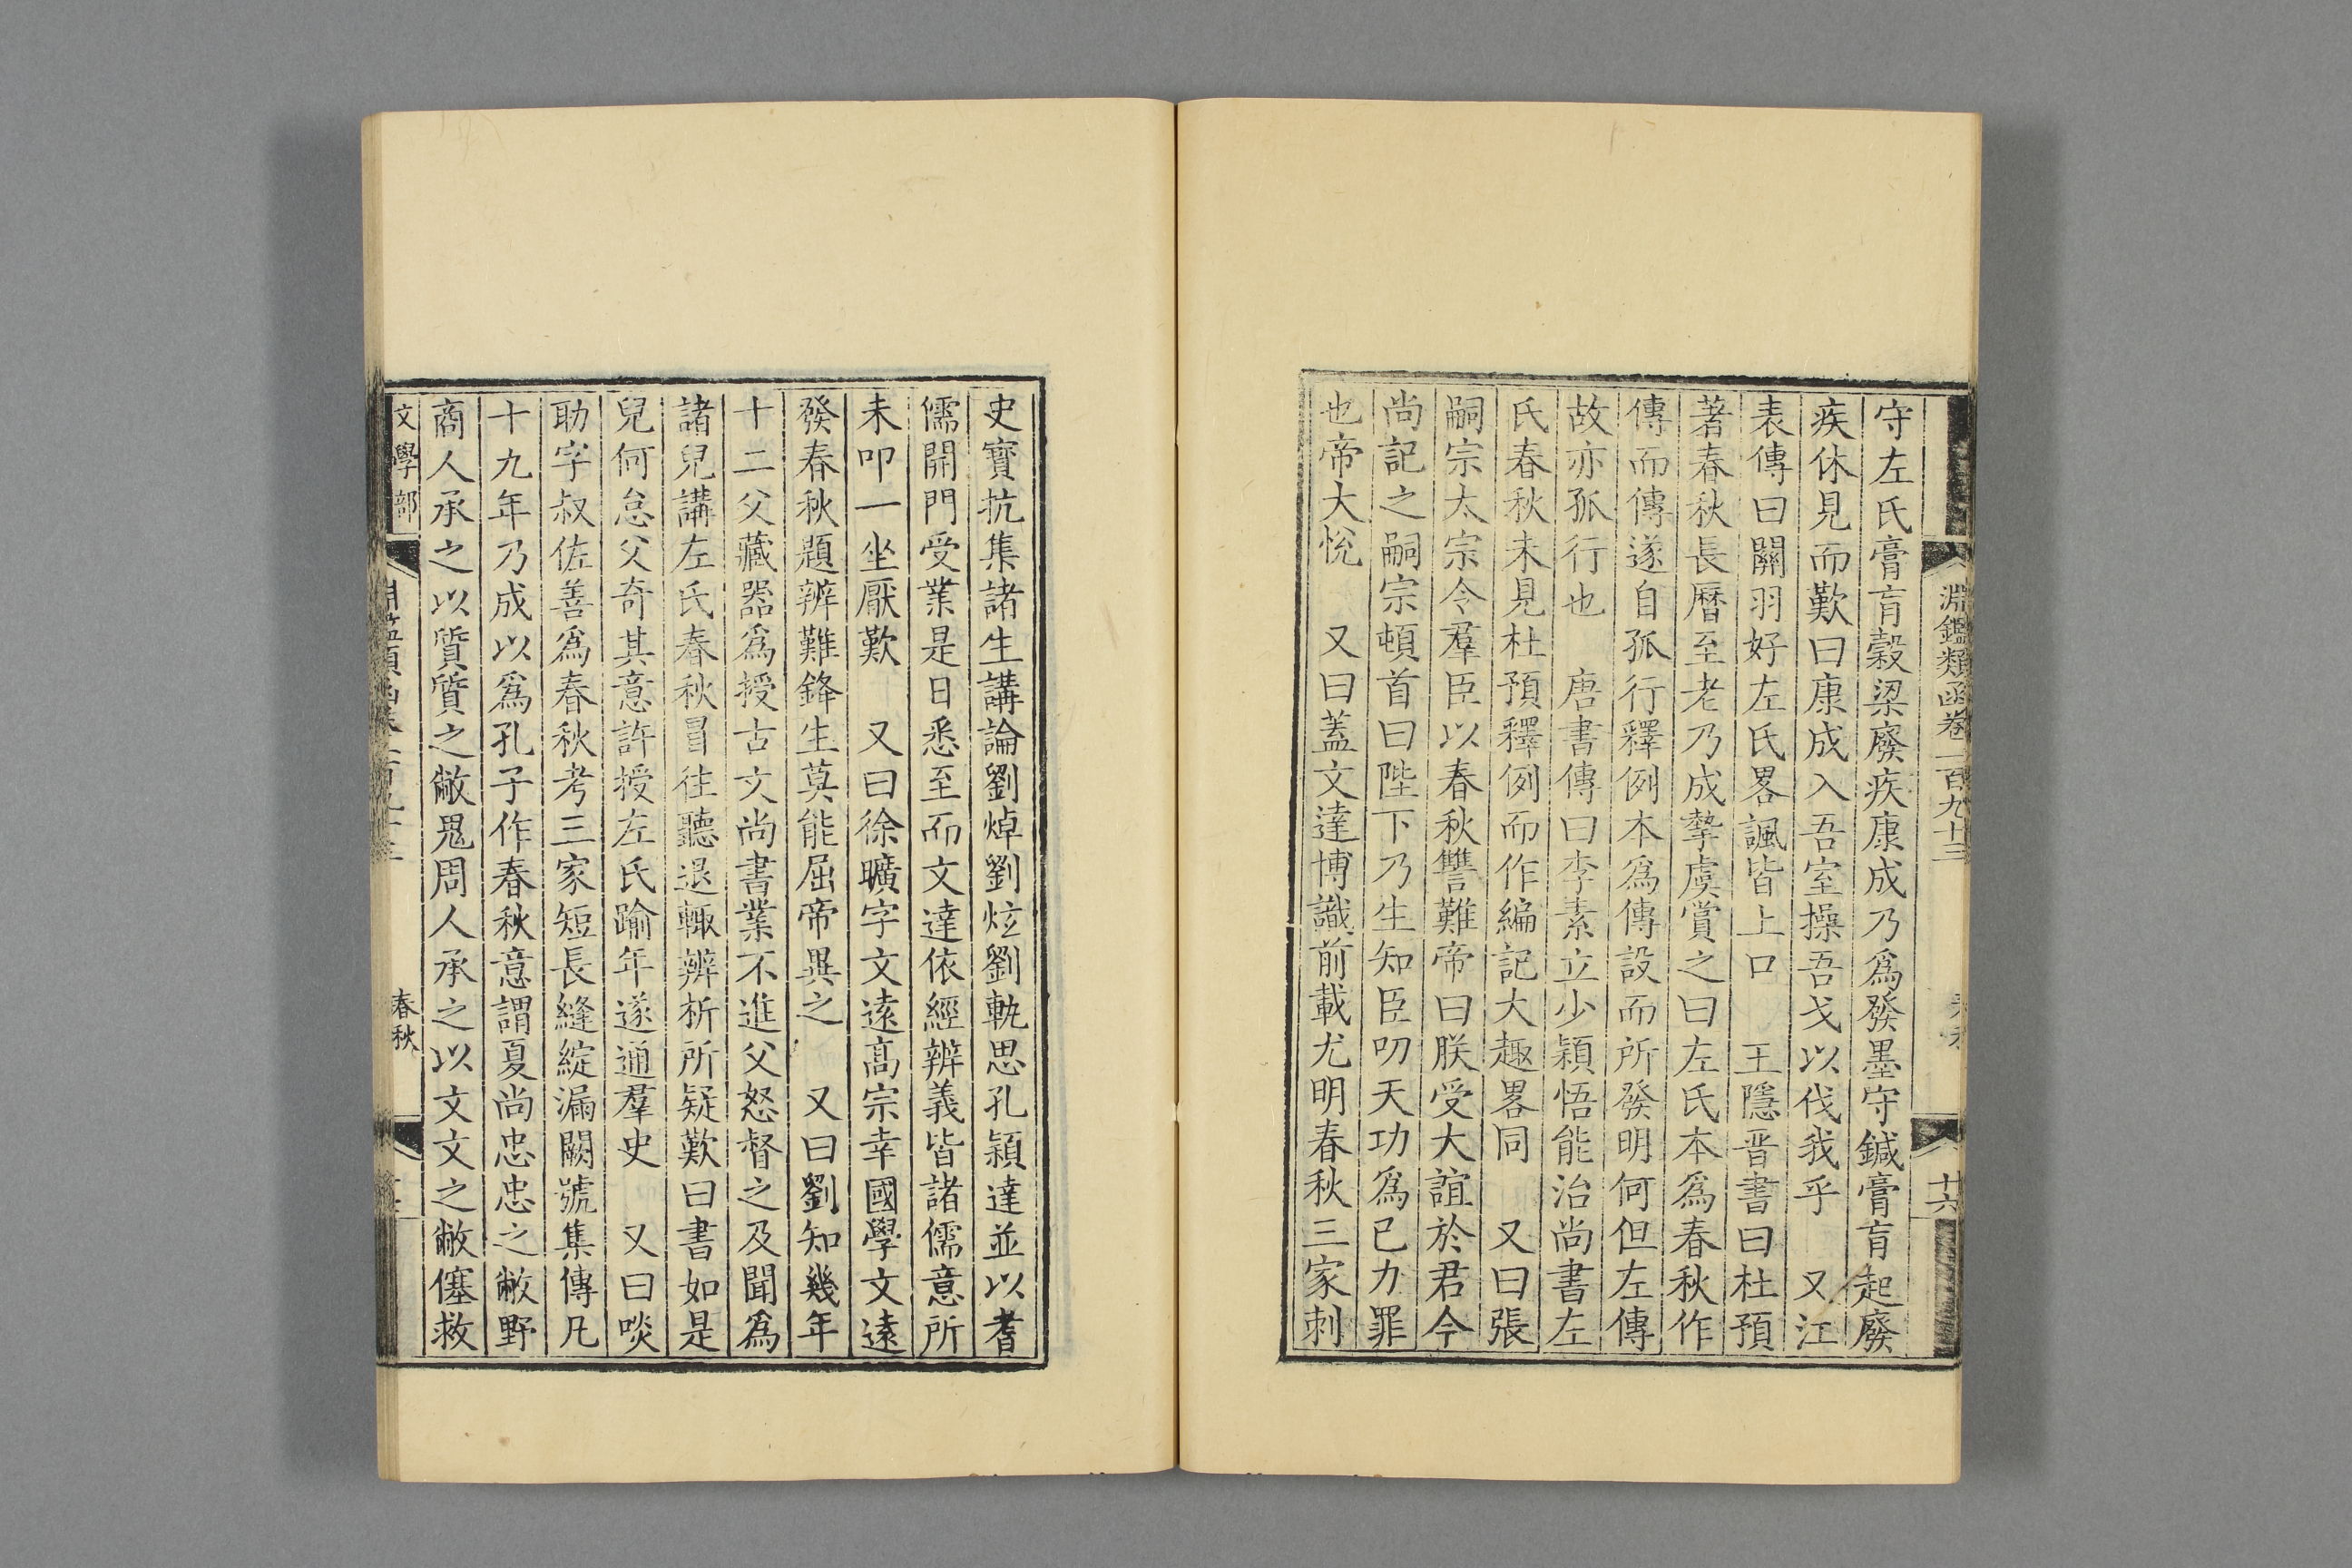 淵鑑類函卷一百九十三
十六
守左氏膏肓穀梁廢疾康成乃爲發墨守鍼膏肓起廢
疾休見而歎曰康成入吾室操吾戈以伐我乎　又江
表傳曰關羽好左氏畧諷皆上口　王隱晉書曰杜預
著春秋長曆至老乃成摯虞賞之曰左氏本爲春秋作
傳而傳遂自孤行釋例本爲傳設而所發明何但左傳
故亦孤行也　唐書傳曰李素立少穎悟能治尚書左
氏春秋未見杜預釋例而作編記大趣畧同　又曰張
嗣宗太宗令羣臣以春秋讐難帝曰朕受大誼於君今
尚記之嗣宗頓首曰陛下乃生知臣叨天功爲已力罪
也帝大悅　又曰蓋文達博識前載尤明春秋三家刺
史竇抗集諸生講論劉焯劉炫劉軌思孔穎達並以耆
儒開門受業是日悉至而文達依經辨義皆諸儒意所
未叩一坐厭歎　又曰徐曠字文遠高宗幸國學文遠
發春秋題辨難鋒生莫能屈帝異之　又曰劉知幾年
十二父藏器爲授古文尚書業不進父怒督之及聞爲
諸兒講左氏春秋冒往聽退輙辨析所疑歎曰書如是
兒何怠父奇其意許授左氏踰年遂通羣史　又曰啖
助字叔佐善爲春秋考三家短長縫綻漏闕號集傳凡
十九年乃成以爲孔子作春秋意謂夏尚忠忠之敝野
商人承之以質質之敝鬼周人承之以文文之敝僿救
文學部
春秋